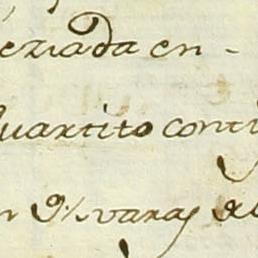 eziada en -
uartito conti
n 9½ varas al